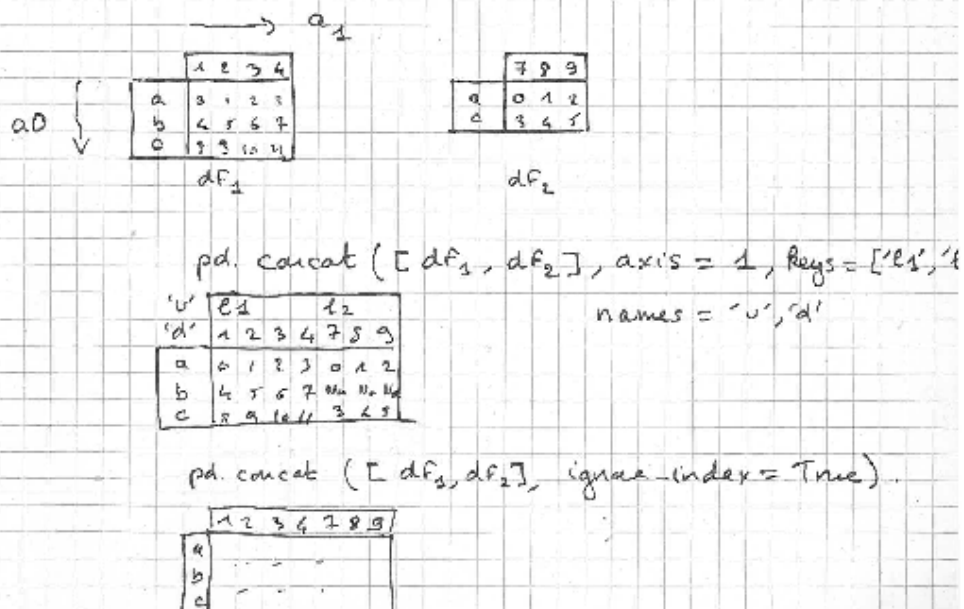 a1
1 2 3 4
7 8 9
a0
a 3 1 2 3
a 0 1 2
b 4 5 6 7
c 3 4 5
c 8 9 10 11
df1
df2
pd. concat ( [ df1, df2 ], axis = 1, keys = ['l1', '
names = 'u', 'd'
'u' l1 l2
'd' 1 2 3 4 7 8 9
a 0 1 2 3 0 1 2
b 4 5 6 7 Na Na Na
c 8 9 10 11 3 4 5
pd. concat ( [ df1, df2 ], ignore_index = True ).
1 2 3 4 7 8 9
a - - -
b - - -
c